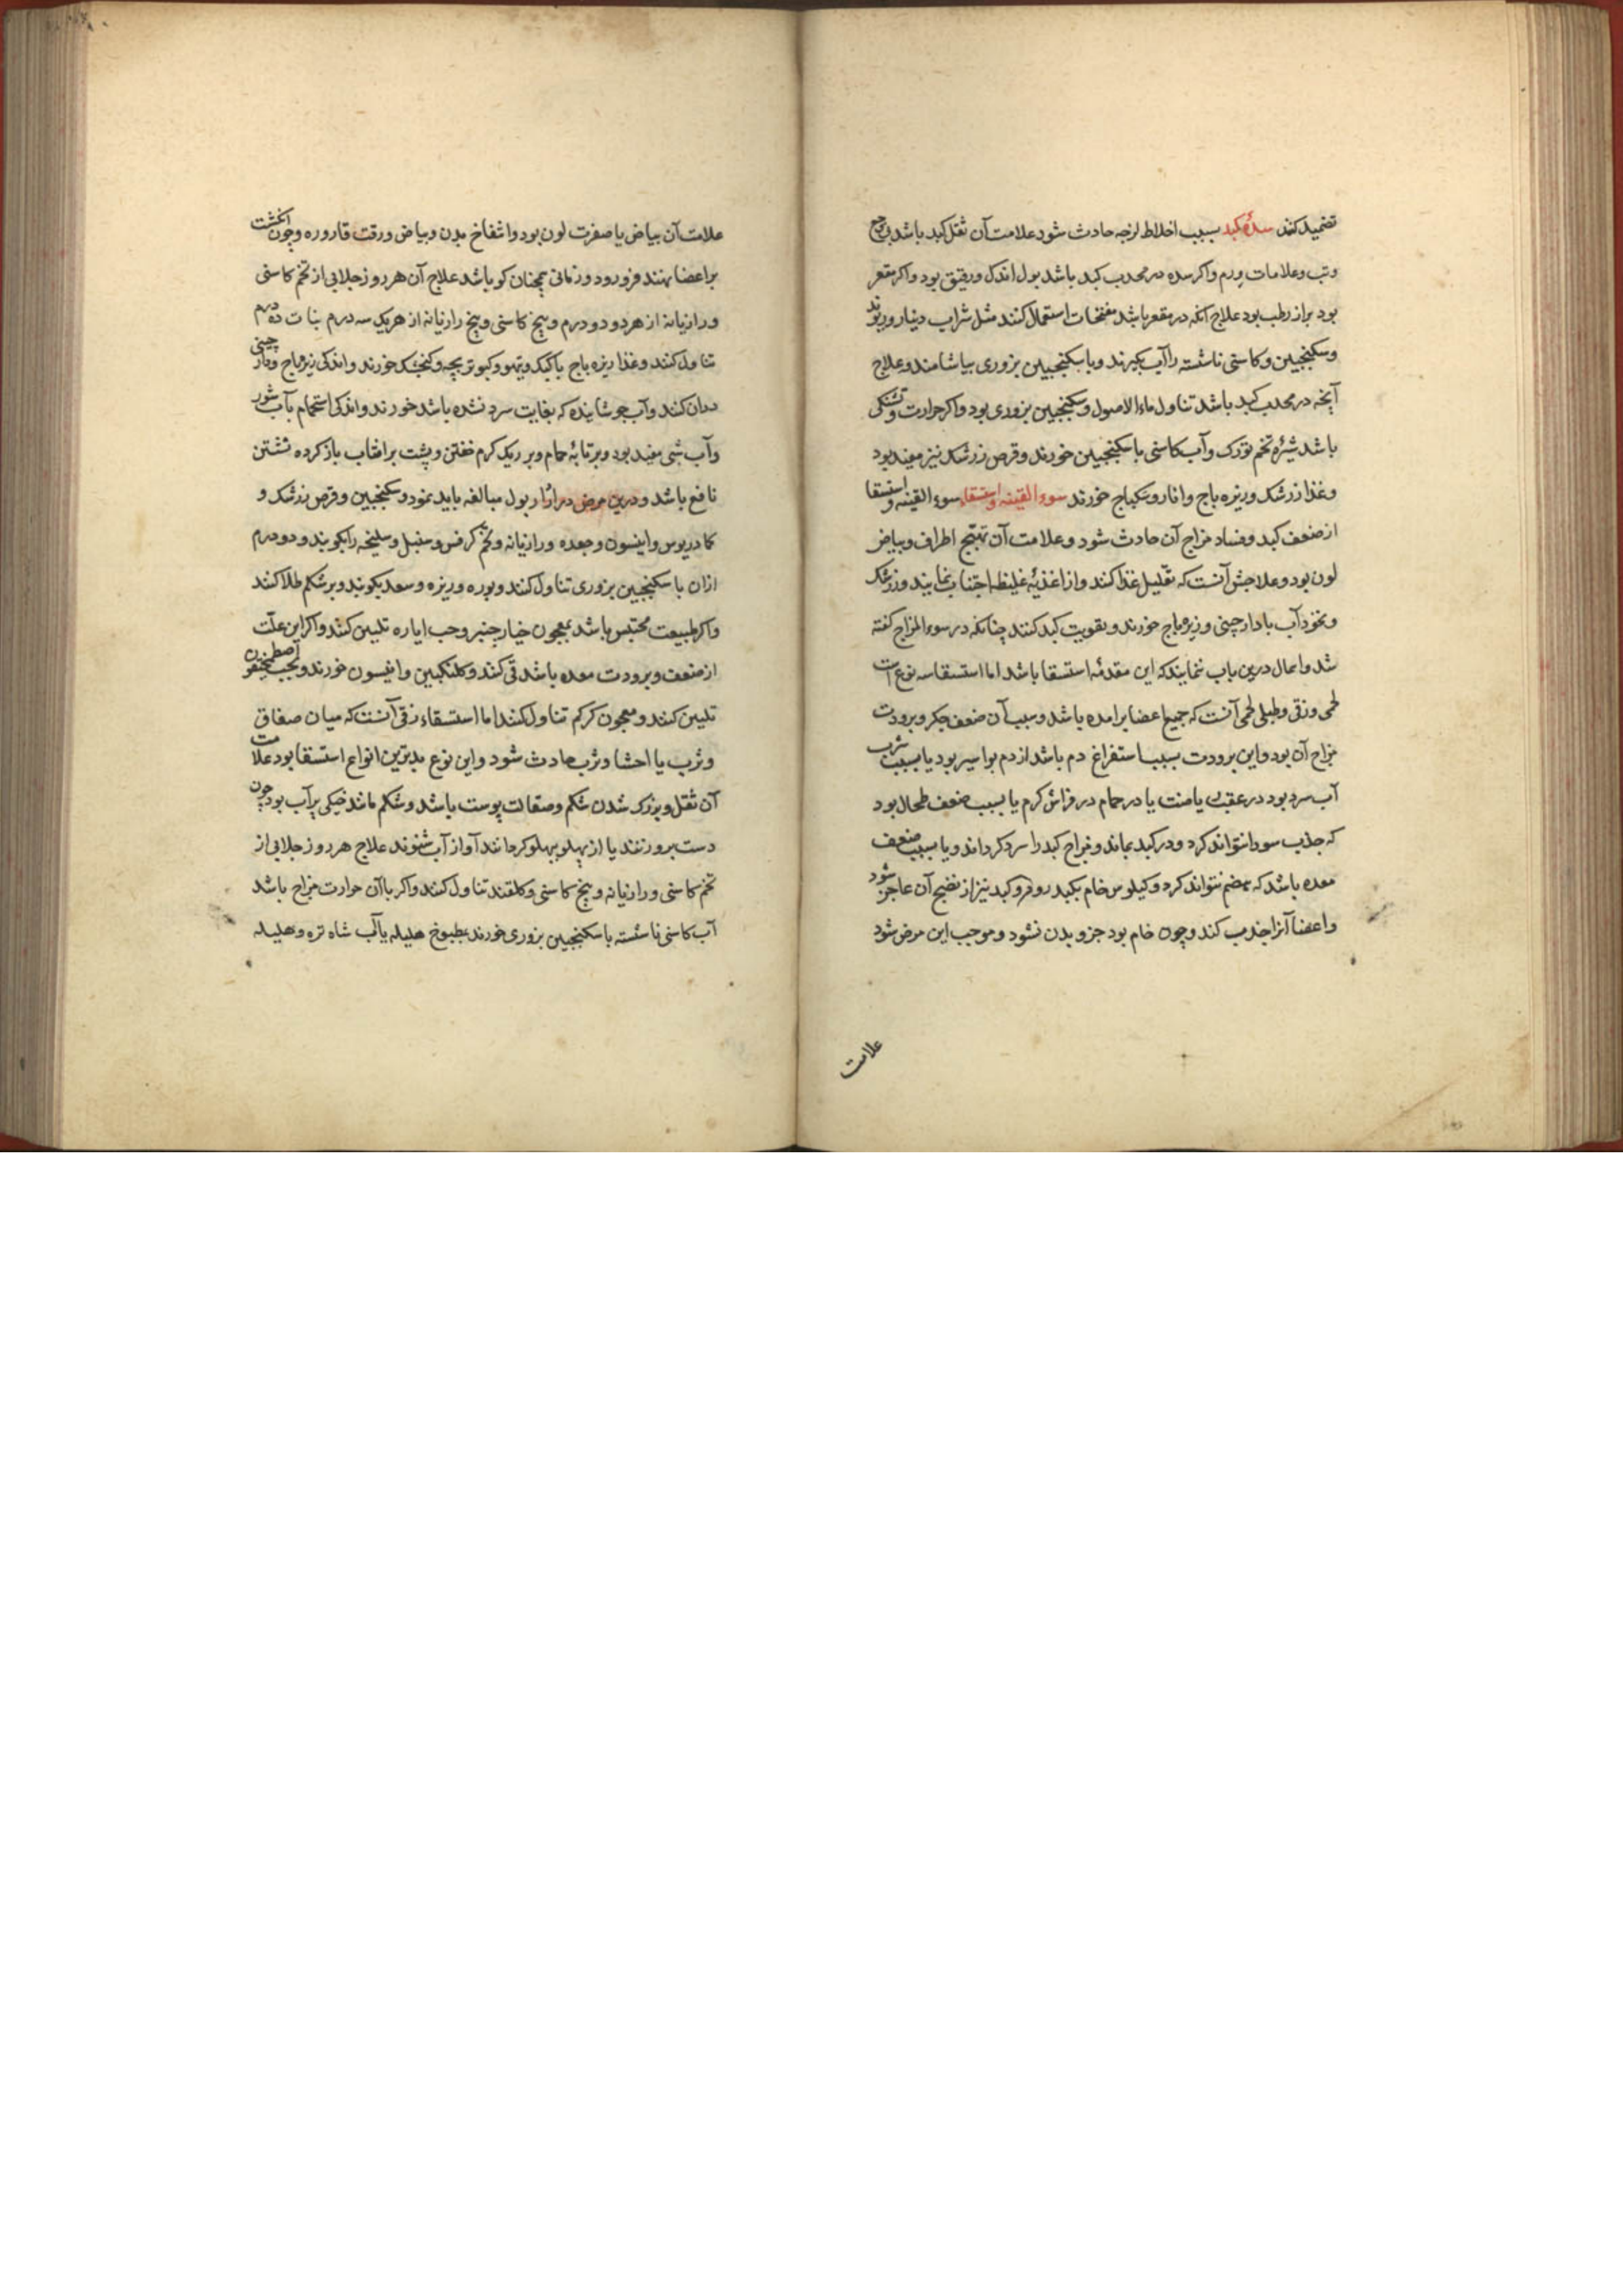 تضمید کنند سدهٔ کبد بسبب اخلاط لزجه حادث شود علامت آن ثقل کبد باشد بی وجع
و تب و علامات ورم و اکر سده در محدب کبد باشد بول اندک و رقیق بود و اکر مقعر
بود براز رطب بود علاج آنکه در مقعر باشد مفتحات استعمال کنند مثل شراب دینار و ریوند
و سکنجبین و کاسنی ناشسته را آب بکیرند و با سکنجبین بزوری بیاشامند و علاج
آنچه در محدب کبد باشد تناول ماءالاصول و سکنجبین بزوری بود و اکر حرارت و تشنکی
باشد شیرهٔ تخم تورک و آب کاسنی با سکنجبین خورند و قرص زرشک نیز مفید بود
و غذا زرشک و زیره باج و انار و سکباج خورند سوء القینه و استسقاء سوء القینه و استسقا
از ضعف کبد و فساد مزاج آن حادث شود و علامت آن تهیج اطراف و بیاض
لون بود و علاجش آنست که تقلیل غذا کنند و از اغذیهٔ غلیظه اجتناب نمایند و زرشک
و نخود آب با دارچنی و زیره باج خورند و تقویت کبد کنند چنانکه در سوء المزاج کفته
شد و اهمال درین باب ننمایند که این مقدمهٔ استسقا باشد اما استسقا سه نوع است
لحمی و زقی و طبلی لحمی آنست که جمیع اعضا برامده باشد و سبب آن ضعف جکر و برودت
مزاج آن بود و این برودت بسبب استفراغ دم باشد از دم بواسیر بود یا بسبب شرب
آب سرد بود در عقب ریاضت یا در حمام در فراش کرم یا بسبب ضعف طحال بود
که جذب سودا نتواند کرد و در کبد بماند و مزاج کبد را سرد کرداند و یا بسبب ضعف
معده باشد که هضم نتواند کرد و کیلوس خام بکبد رود و کبد نیز از نضج آن عاجز شود
و اعضا آنرا جذب کند و چون خام بود جزو بدن نشود و موجب این مرض شود
علامت
علامت آن بیاض یا صفرت لون بود و انتفاخ بدن و بیاض و رقت قاروره و چون انکشت
بر اعضا نهند فرو رود و زمانی همچنان کو باشد علاج آن هر روز جلابی از تخم کاسنی
و رازیانه از هر دو دو درم و بیخ کاسنی و بیخ رازیانه از هر یک سه درم نبات ده درم
تناول کنند و غذا زیره باج با کبک و تیهو و کبوتر بچه و کنجشک خورند و اندکی زیره باج و دار چینی
دران کنند و آب جوشانیده که بغایت سرد نشده باشد خورند و اندکی استحمام بآب شور
و آب شبی مفید بود و بر تابهٔ حمام و بر ریک کرم خفتن و پشت بر افتاب باز کرده نشستن
نافع باشد و درین مرض در ادرار بول مبالغه باید نمود و سکنجبین و قرص زرشک و
کمادریوس و انیسون و جعده و رازیانه و تخم کرفس و سنبل و سلیخه را بکوبند و دو درم
ازان با سکنجبین بزوری تناول کنند و بوره و زیره و سعد بکوبند و بر شکم طلا کنند
و اکر طبیعت محتبس باشد بمعجون خیار چنبر و حب ایاره تلیین کنند و اکر این علت
از ضعف و برودت معده باشد قی کنند و کلنکبین و انیسون خورند و بحب اصطمخیقون
تلیین کنند و معجون کرکم تناول کنند اما استسقاء زقی آنست که میان صفاق
و ثرب یا احشا و ثرب حادث شود و این نوع بدترین انواع استسقا بود علامت
آن ثقل و بزرک شدن شکم و صقالت پوست باشد و شکم مانند خیکی پر آب بود چون
دست برو زنند یا از پهلو بپهلو کردانند آواز آب شنوند علاج هر روز جلابی از
تخم کاسنی و رازیانه و بیخ کاسنی و کلقند تناول کنند و اکر باآن حرارت مزاج باشد
آب کاسنی ناشسته با سکنجبین بزوری خورند بطبوخ هلیله یا آب شاه تره و هلیله